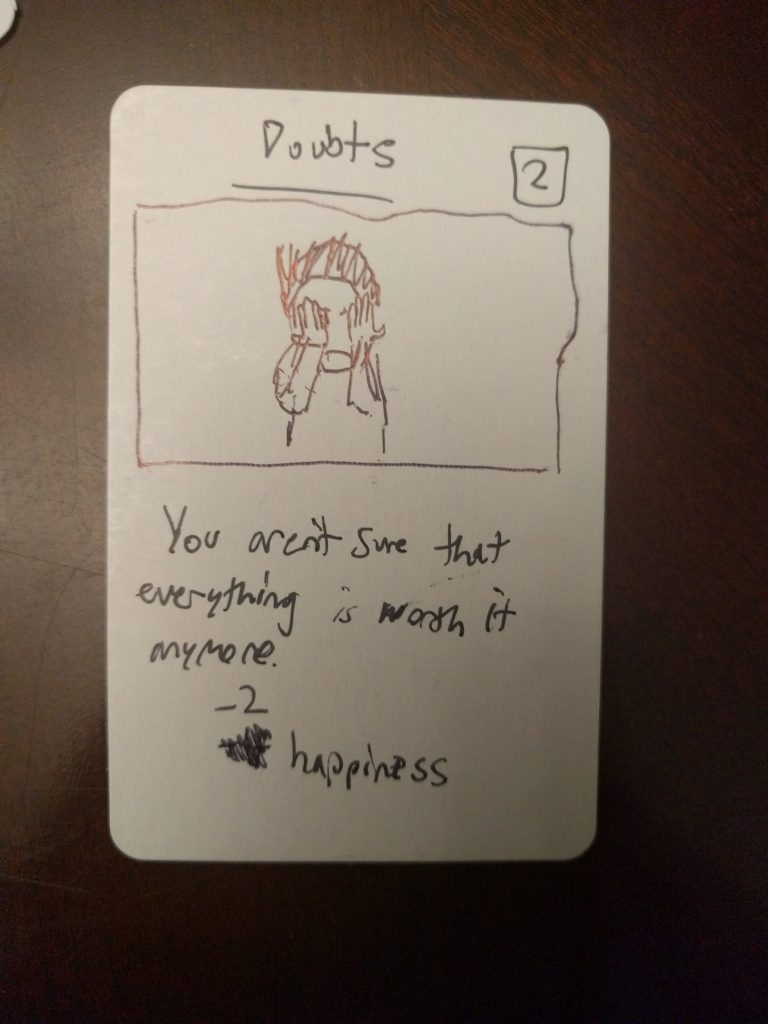 Doubts
2
You aren't sure that
everything is worth it
anymore.
-2
happiness